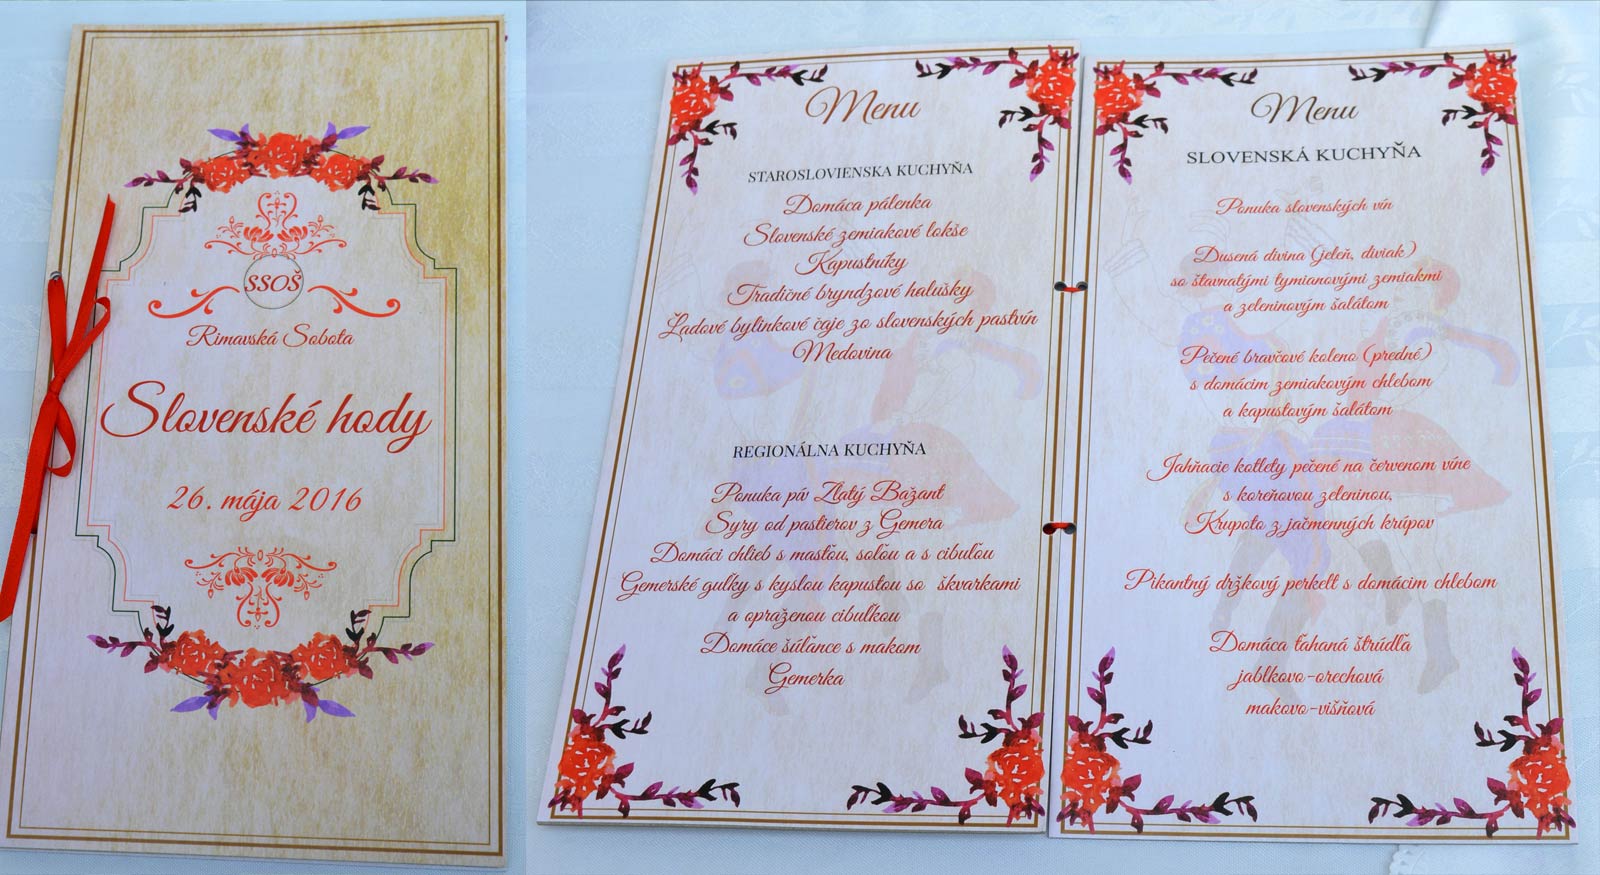 SSOŠ
Rimavská Sobota
Slovenské hody
26. mája 2016
Menu
STAROSLOVIENSKA KUCHYŇA
Domáca pálenka
Slovenské zemiakové lokše
Kapustníky
Tradičné bryndzové halušky
Ľadové bylinkové čaje zo slovenských pastvín
Medovina
REGIONÁLNA KUCHYŇA
Ponuka pív Zlatý Bažant
Syry od pastierov z Gemera
Domáci chlieb s masťou, soľou a s cibuľou
Gemerské guľky s kyslou kapustou so škvarkami
a opraženou cibuľkou
Domáce šúľance s makom
Gemerka
Menu
SLOVENSKÁ KUCHYŇA
Ponuka slovenských vín
Dusená divina (jeleň, diviak)
so šťavnatými tymianovými zemiakmi
a zeleninovým šalátom
Pečené bravčové koleno (predné)
s domácim zemiakovým chlebom
a kapustovým šalátom
Jahňacie kotlety pečené na červenom víne
s koreňovou zeleninou,
Krupoto z jačmenných krúpov
Pikantný držkový perkelt s domácim chlebom
Domáca ťahaná štrúdľa
jablkovo-orechová
makovo-višňová